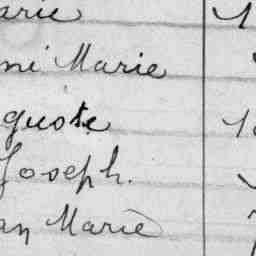 arie
mi Marie
guste
Joseph.
an Marie